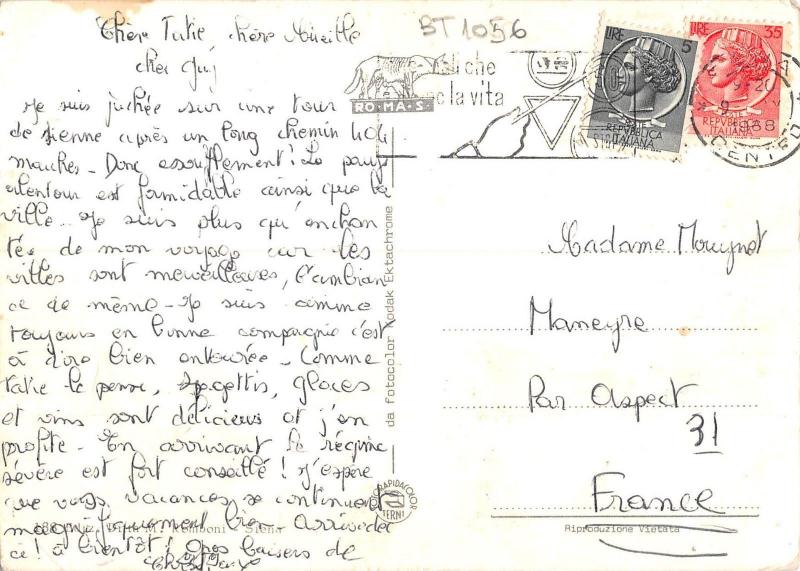 BT1056
Chère Tatie, chère Mireille
cher Guy
Je suis juchée sur une tour
de Sienne après un long chemin 404
marches - Donc essoufflement! Le pays
alentour est formidable ainsi que la
ville - Je suis plus qu'enchan
tée de mon voyage car les
villes sont merveilleuses, l'ambian
ce de même - Je suis comme
toujours en bonne compagnie c'est
à dire bien entourée - Comme
tatie le pense, Spagettis, glaces
et vins sont délicieux et j'en
profite - En arrivant le régime
sévère est fort conseillé! J'espère
que vos vacances se continuent
magnifiquement bien arriveder
ci! à bientôt! Gros baisers de
Siena
ROMA S.
che
la vita
LIRE 5
REPVBBLICA
ITALIANA
LIRE 35
REPVBBLICA
ITALIANA
1968
da Fotocolor Kodak Ektachrome
TERNI
Madame Mouynet
Maneyre
Par Aspect
31
France
Riproduzione Vietata